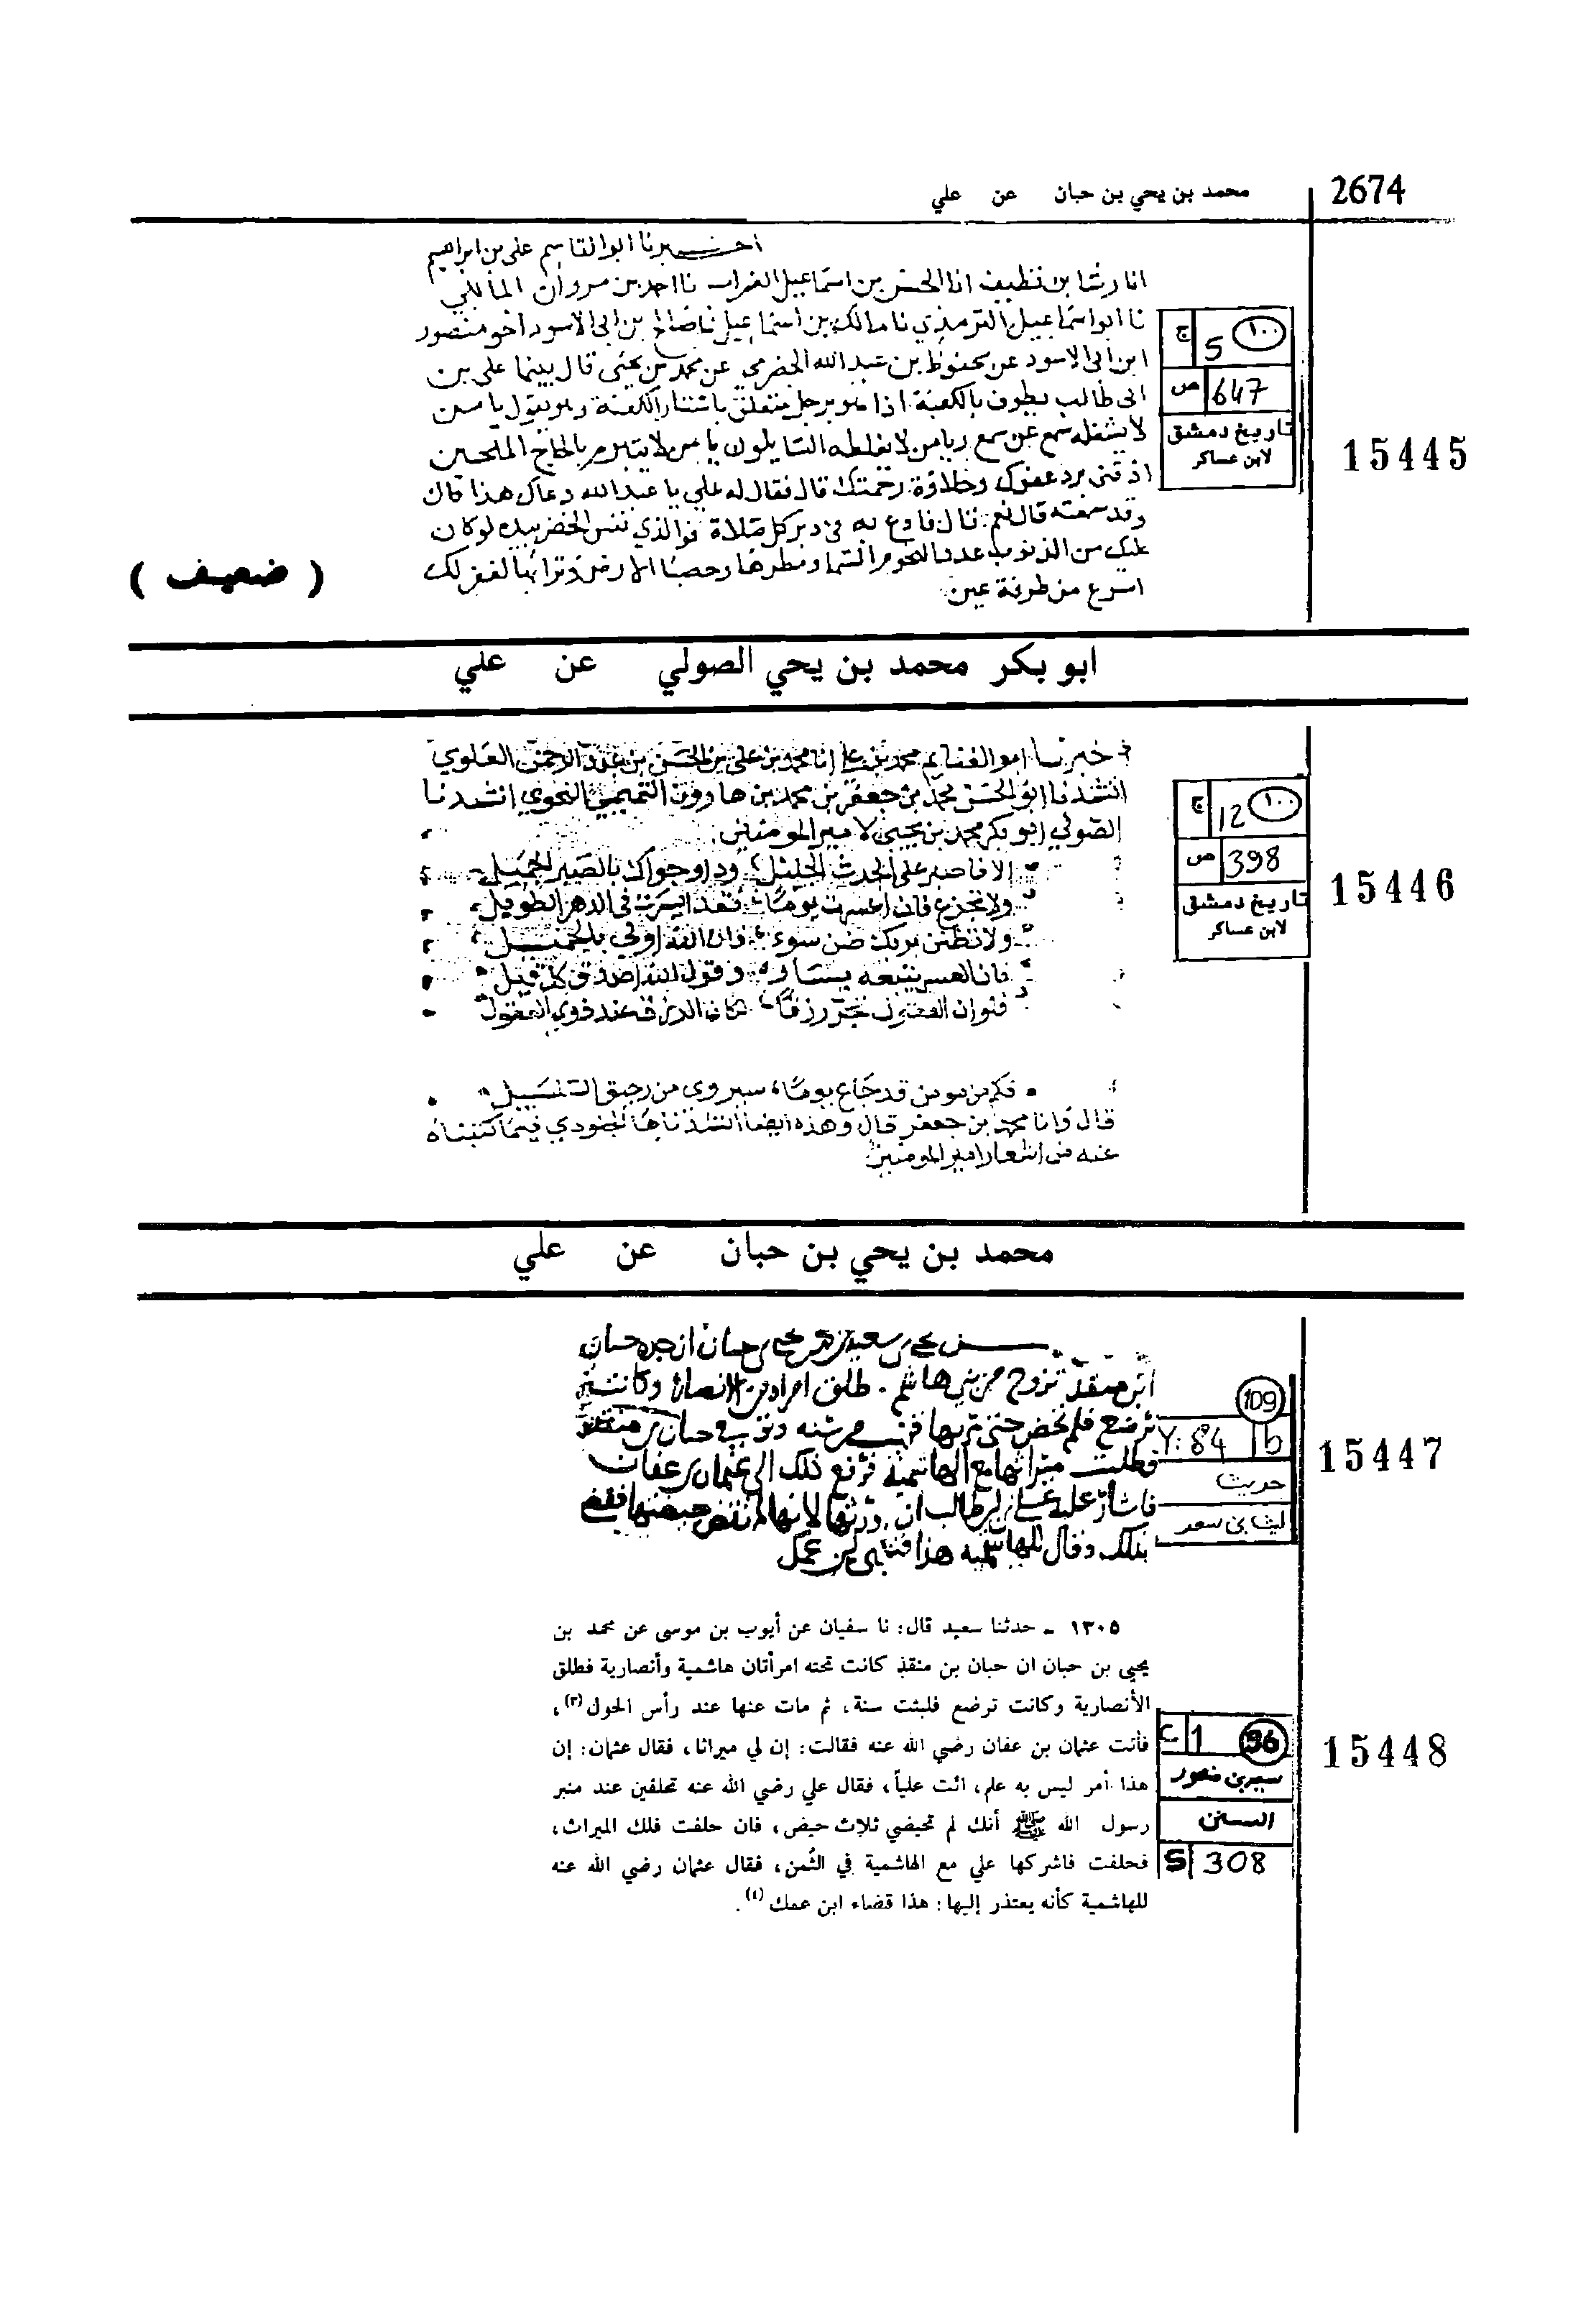 محمد بن يحي بن حبان عن علي
2674
اخبرنا ابوالقاسم على بن ابراهيم
انا رشا بن نظيف انا الحسن بن اسماعيل الضراب نا احمد بن مروان المالكي
نا ابو اسماعيل الترمذي نا مالك بن اسماعيل نا صالح بن ابى الاسود اخو منصور
ابن ابى الاسود عن محفوظ بن عبد الله الحضرمي عن محمد بن يحيى قال بينما على بن
ابى طالب يطوف بالكعبة اذا هو برجل متعلق باستار الكعبة وهو يقول يا من
لا يشغله سمع عن سمع ويا من لا يغلطه السايلون يا من لا يتبرم بالحاح الملحين
اذقنى برد عفوك وحلاوة رحمتك قال فقال له علي يا عبد الله دعاك هذا قال
وقد سمعته قال نعم قال فادع به فى دبر كل صلاة فوالذي نفس الخضر بيده لو كان
عليك من الذنوب عدد النجوم السما ومطرها وحصبا الارض وترابها لغفر لك
اسرع من طرفة عين
١٠٠
5
ج
647
ص
تاريخ دمشق
لابن عساكر
15445
( ضعيف )
ابو بكر محمد بن يحي الصولي عن علي
خبرنا ابو الغنايم محمد بن على انا محمد بن على بن الحسن بن عبد الرحمن العلوي
انشدنا ابو الحسن محمد بن جعفر بن محمد بن هارون التميمي النحوي انشدنا
الصولي ابو بكر محمد بن يحيى لامير المومنين
الا فاصبر على الحدث الجليل وداو جواك بالصبر الجميل
ولا تجزع فان اعسرت يوما فقد ايسرت فى الدهر الطويل
ولا تظنن بربك ظن سوء فان الله اولى بالجميل
فان العسر يتبعه يسار وقول الله اصدق كل قيل
فلو ان العقول تجر رزقا لكان الرزق عند ذوي العقول
فكم من مومن قد جاع يوما سيروى من رحيق السلسبيل
قال وانا محمد بن جعفر قال وهذه ايضا انشدناها الجلودي فيما كتبناه
عنه من اشعار امير المومنين
١٠٠
12
ج
398
ص
تاريخ دمشق
لابن عساكر
15446
محمد بن يحي بن حبان عن علي
عن يحى بن سعيد عن محمد بن يحى بن حبان ان جده حبان
ابن منقذ تزوج من بني هاشم . طلق امراة من الانصار وكانت
ترضع فلم تحض حتى مر بها قريب من سنة وتوفي حبان بن منقذ
فطلبت ميراثها مع الهاشمية فرفع ذلك الى عثمان بن عفان
فاشار عليه على بن ابى طالب ان ورثها لانها لم تنقض حيضتها فقضى
بذلك وقال للهاشمية هذا قضى ابن عمك
109
Y: 84
1b
حديث
ليث بن سعد
15447
١٣٠٥ ـ حدثنا سعيد قال: نا سفيان عن أيوب بن موسى عن محمد بن
يحيى بن حبان ان حبان بن منقذ كانت تحته امرأتان هاشمية وأنصارية فطلق
الأنصارية وكانت ترضع فلبثت سنة، ثم مات عنها عند رأس الحول (٣)،
فأتت عثمان بن عفان رضي الله عنه فقالت: إن لي ميراثا، فقال عثمان: إن
هذا أمر ليس به علم، ائت علياً، فقال علي رضي الله عنه تحلفين عند منبر
رسول الله ﷺ أنك لم تحيضي ثلاث حيض، فان حلفت فلك الميراث،
فحلفت فاشركها علي مع الهاشمية في الثُمن، فقال عثمان رضي الله عنه
للهاشمية كأنه يعتذر إليها: هذا قضاء ابن عمك (٤).
96
1
C
سعيد بن منصور
السنن
S 308
15448